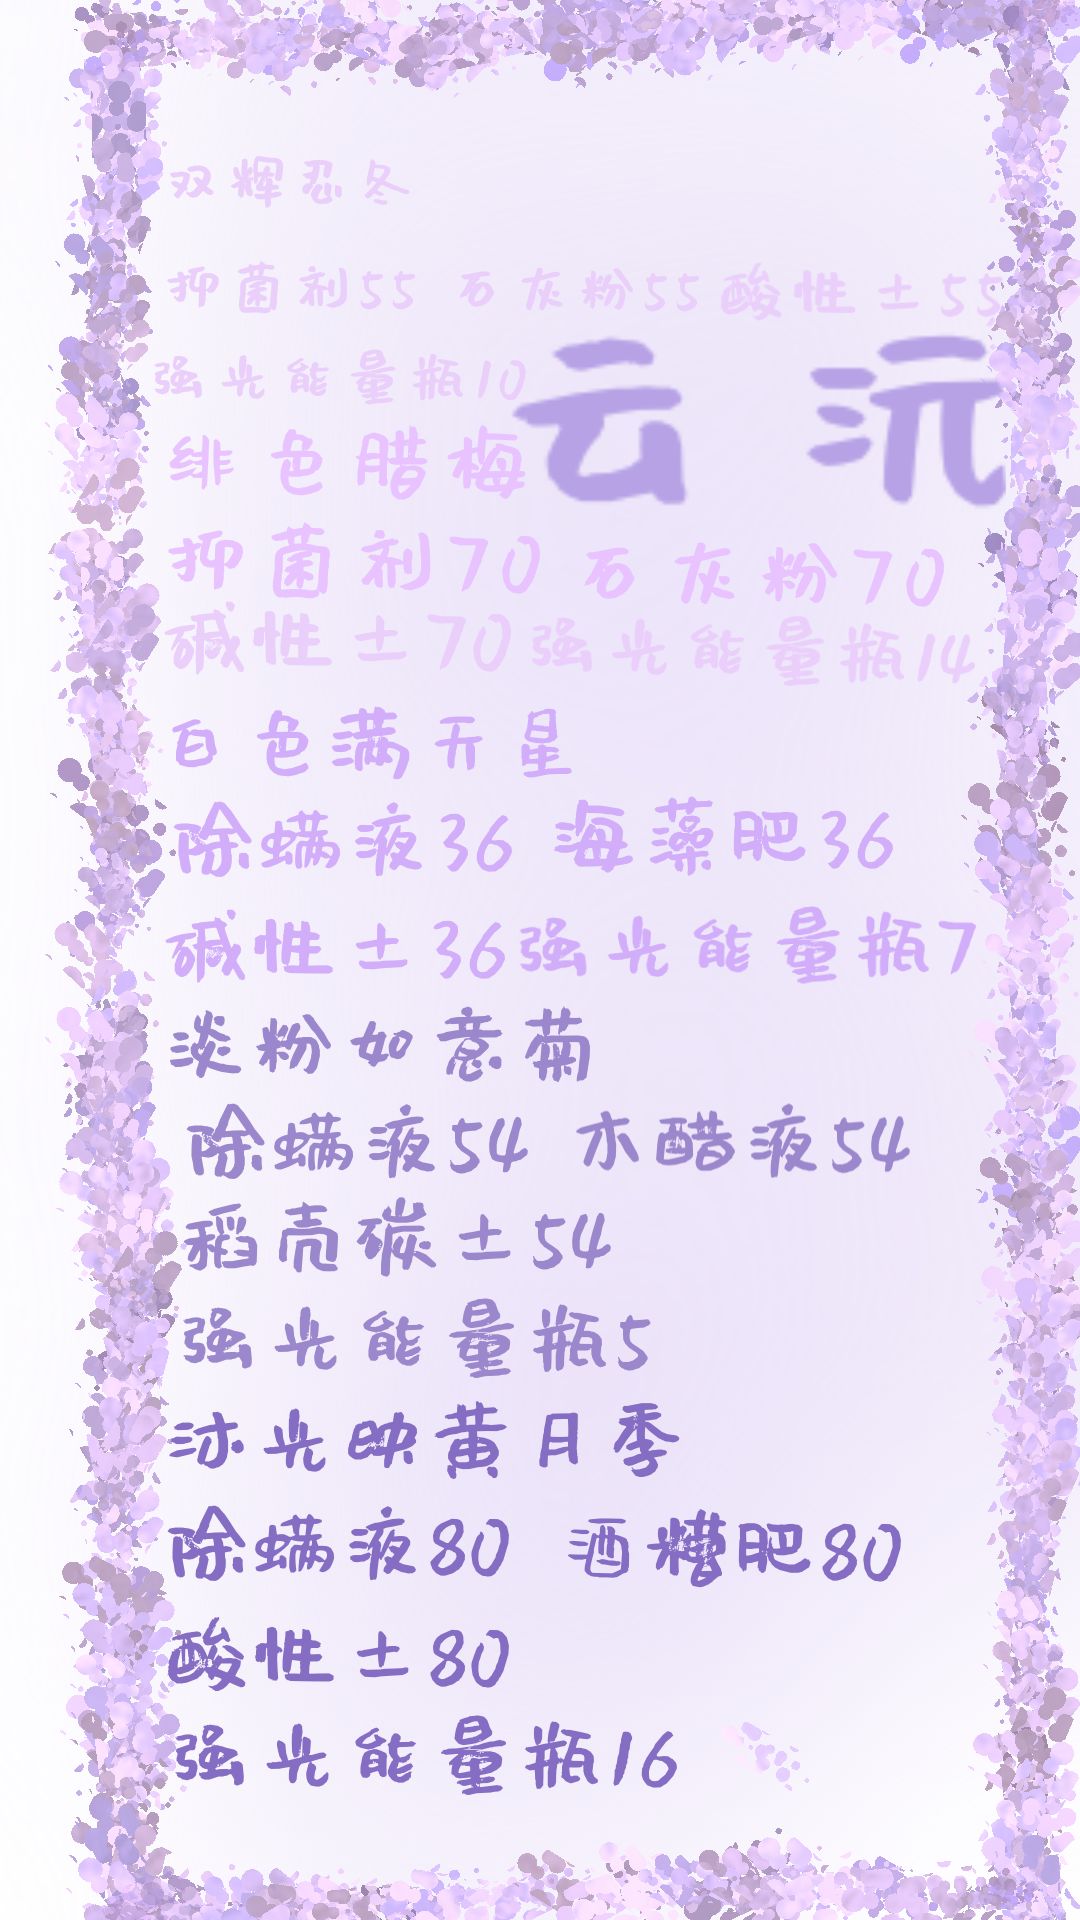 双辉忍冬
抑菌剂55 石灰粉55 酸性土55
强光能量瓶10
云沅
绯色腊梅
抑菌剂70 石灰粉70
碱性土70强光能量瓶14
白色满天星
除螨液36 海藻肥36
碱性土36强光能量瓶7
淡粉如意菊
除螨液54 木醋液54
稻壳碳土54
强光能量瓶5
沐光映黄月季
除螨液80 酒糟肥80
酸性土80
强光能量瓶16